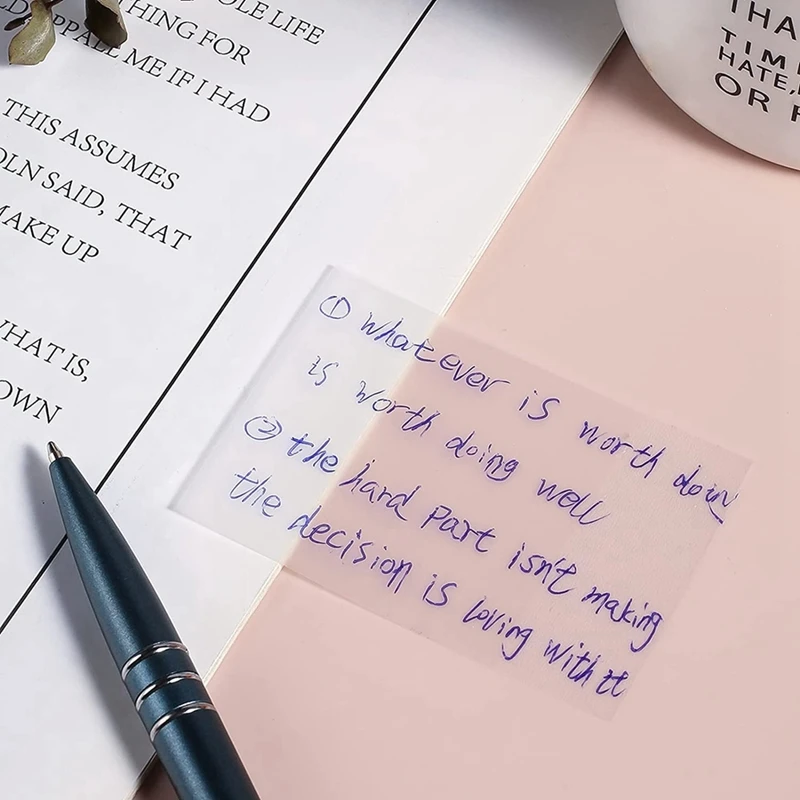 OLE LIFE
HING FOR
APPALL ME IF I HAD
THIS ASSUMES
OLN SAID, THAT
MAKE UP
WHAT IS,
OWN
THA
TIM
HATE,
OR
① Whatever is worth
is worth doing well
② the hard part isn't making
the decision is loving with it